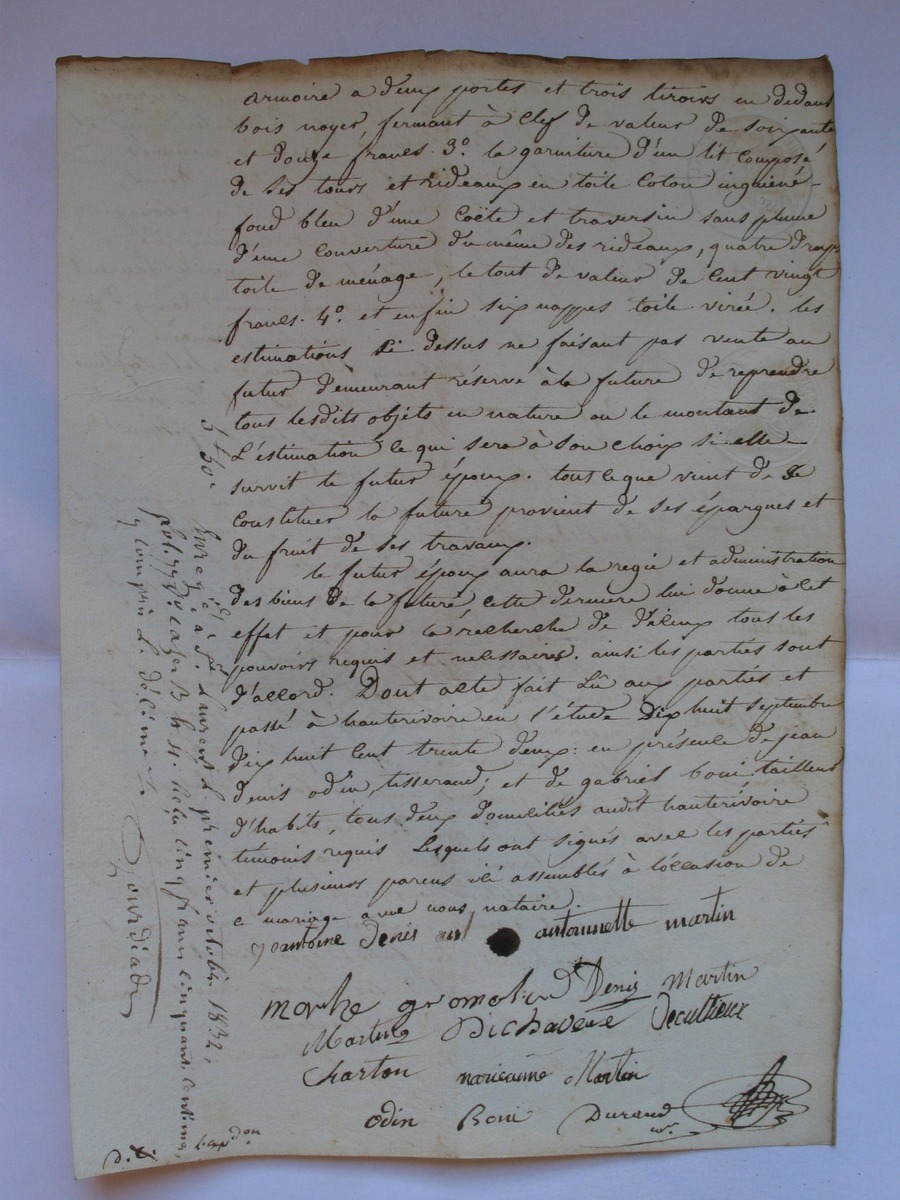 armoire a deux portes et trois tiroirs en dedans
bois noyer, fermant à clef de valeur de soixante
et douze francs. 3º. la garniture d'un lit composé
de ses tours et rideaux en toile coton
fond bleu d'une coëte et traversin sans plume
d'une couverture du même des rideaux, quatre draps
toile de ménage, le tout de valeur de cent vingt
francs. 4º. et enfin six nappes toile virée. les
estimations ci dessus ne faisant pas vente au
futur demeurant réservé à la future de reprendre
tous lesdits objets en nature ou le montant de
L'estimation ce qui sera à son choix si elle
survit le futur époux. tout ce que vient de se
constituer la future provient de ses épargnes et
du fruit de ses travaux.
le futur époux aura la regie et administration
des biens de la future, cette derniere lui donne à cet
effet et pour la recherche de d'iceux tous les
pouvoirs requis et necessaires. ainsi les parties sont
d'accord. Dont acte fait Lû aux parties et
passé à hauterivoire en l'étude Dix huit septembre
dix huit cent trente deux: en présence de jean
denis odin, tisserand; et de gabriel boni tailleur
d'habits, tous deux domiciliés audit hauterivoire
témoins requis Lesquels ont signés avec les parties
et plusieurs parens ici assemblés à l'occasion de
ce mariage avec nous notaire.
antoine Denis antoinnette martin
Denis Martin
Martin Decultieux
Charton marieanne Martin
odin Boni Durand
5 f 50 c
Enregé à St. Laurent le premier octobre 1832,
fol. 77 Vº case 3 reçu cinq francs cinquante centimes,
y compris le décime